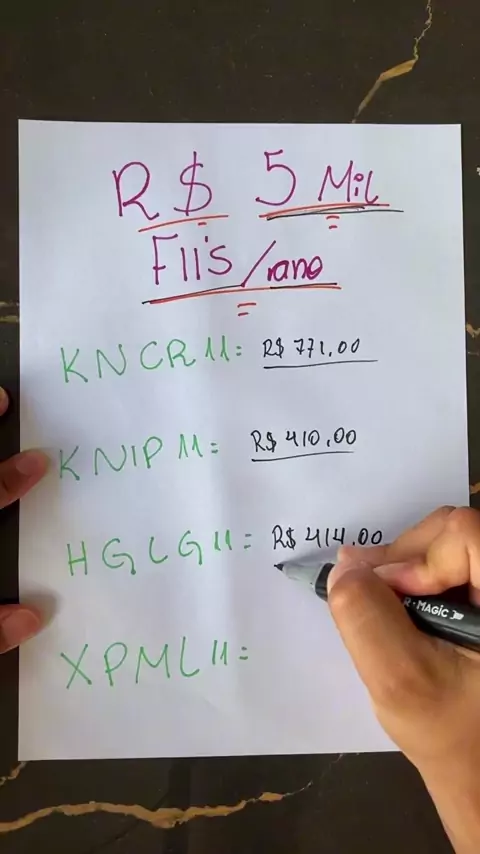 R$ 5 Mil
FII's/ano
KNCR11: R$ 771,00
KNIP11: R$ 410,00
HGLG11: R$ 414,00
XPML11:
R·MAGIC